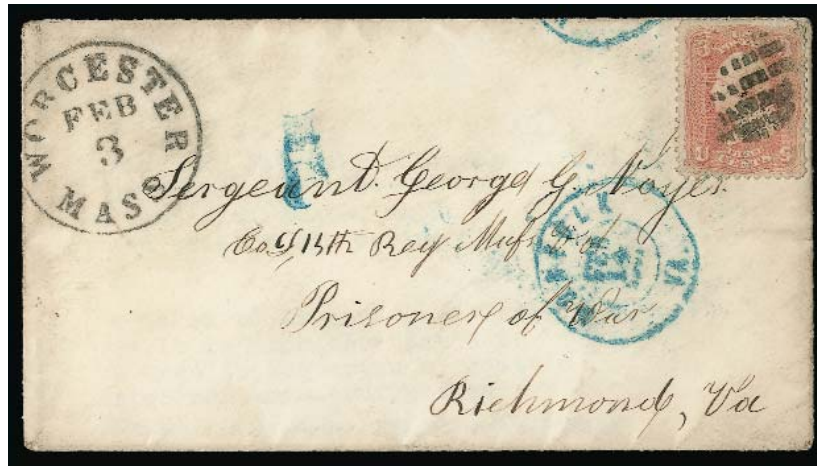 WORCESTER
FEB
3
MASS
Sergeant. George G. Noyes.
Co 15th Reg Mass
NORFOLK VA
Prisoner of War
Richmond, Va